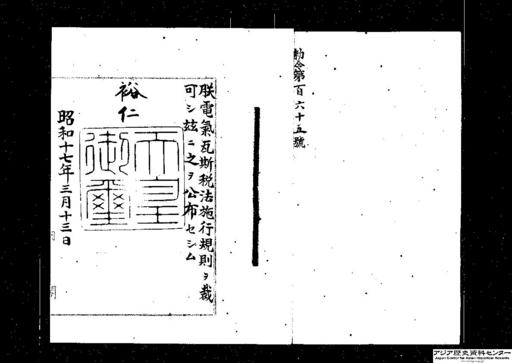 勅令第百六十五號
朕電氣瓦斯税法施行規則ヲ裁
可シ玆ニ之ヲ公布セシム
裕仁
天皇
御璽
昭和十七年三月十三日
アジア歴史資料センター
Japan Center for Asian Historical Records